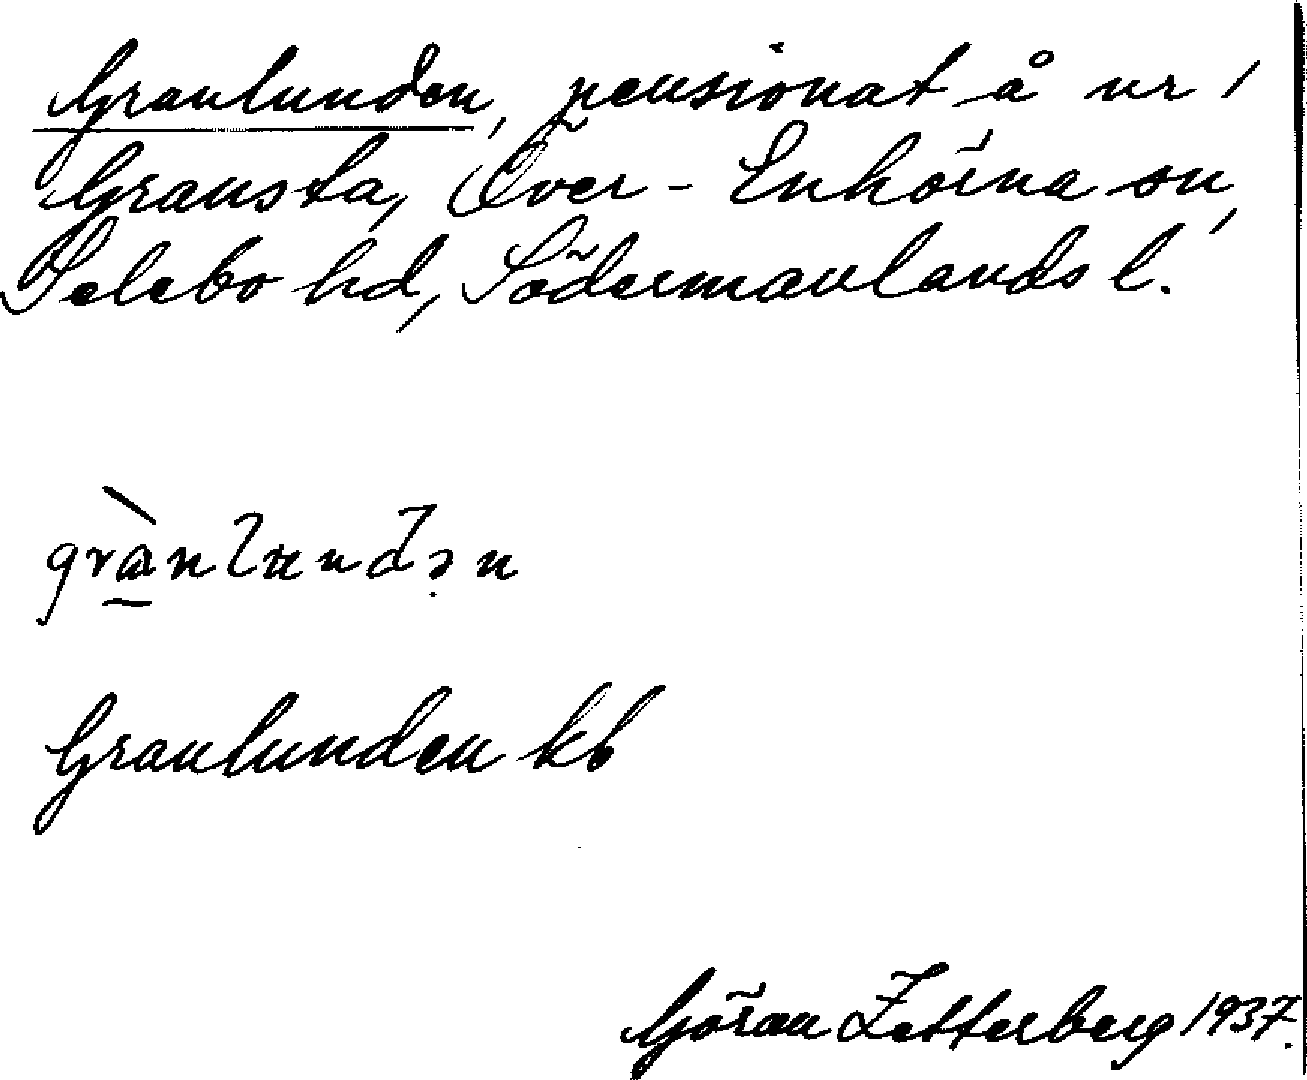 Granlunden, pensionat å nr 1
Gransta, Över-Enhörna sn,
Selebo hd, Södermanlands l.
grὰnlʉndən
Granlunden kb
Göran Zetterberg 1937.